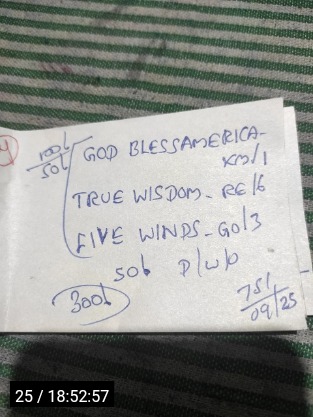 100b
50b
GOD BLESSAMERICA-
KM/1
TRUE WISDOM- RE/6
FIVE WINDS- GO/3
50b P/W/P
300b
751
09/25
25 / 18:52:57